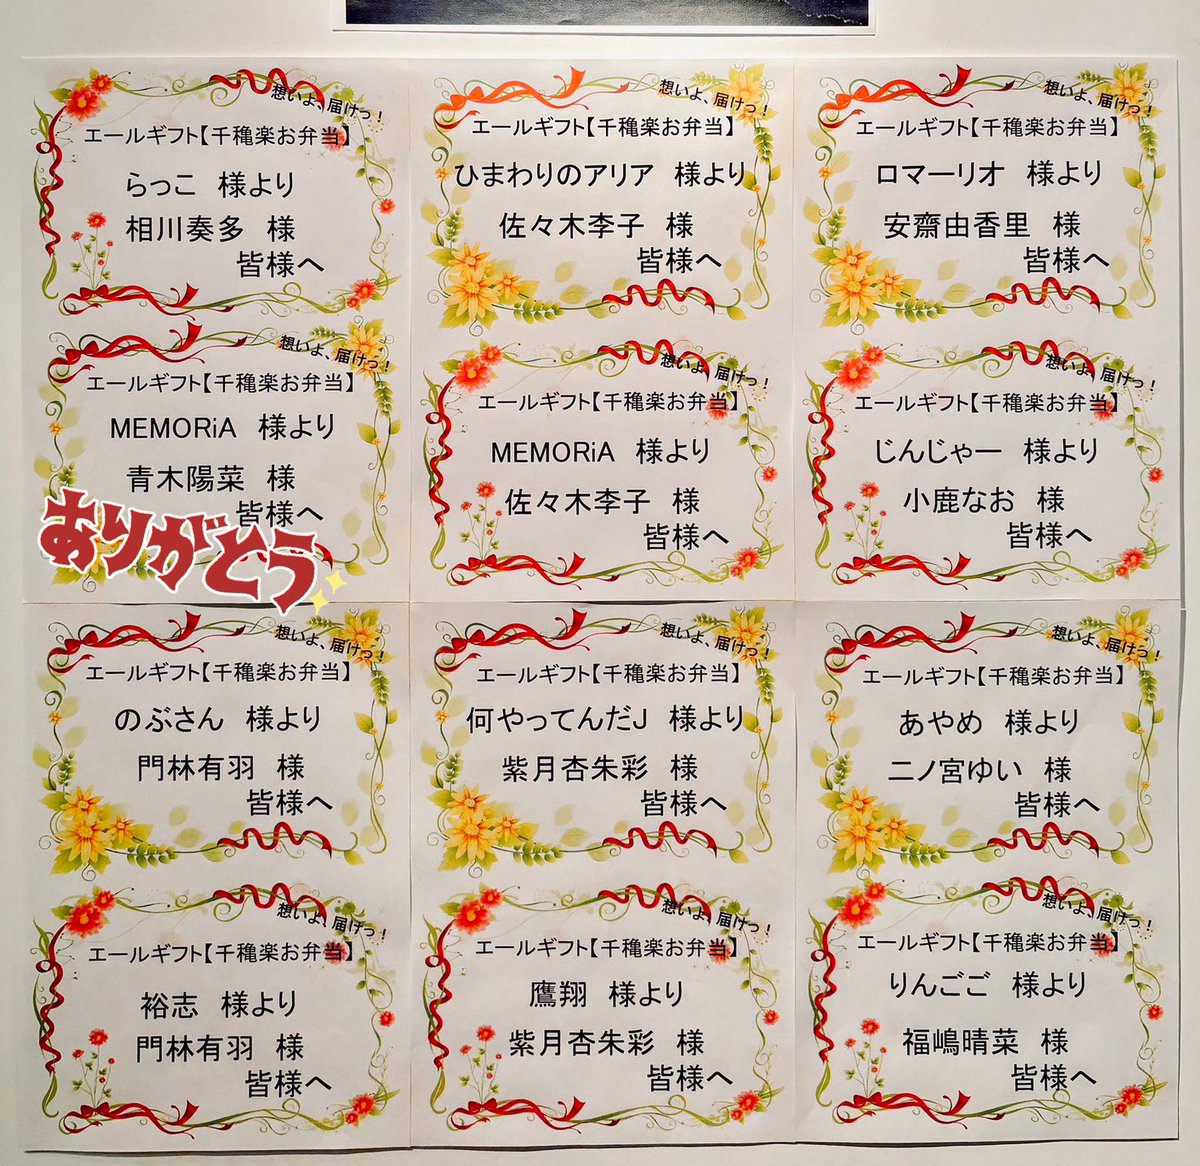 想いよ、届けっ！
エールギフト【千穐楽お弁当】
らっこ　様より
相川奏多　様
皆様へ
想いよ、届けっ！
エールギフト【千穐楽お弁当】
ひまわりのアリア　様より
佐々木李子　様
皆様へ
想いよ、届けっ！
エールギフト【千穐楽お弁当】
ロマーリオ　様より
安齋由香里　様
皆様へ
想いよ、届けっ！
エールギフト【千穐楽お弁当】
MEMORiA　様より
青木陽菜　様
皆様へ
ありがとう
想いよ、届けっ！
エールギフト【千穐楽お弁当】
MEMORiA　様より
佐々木李子　様
皆様へ
想いよ、届けっ！
エールギフト【千穐楽お弁当】
じんじゃー　様より
小鹿なお　様
皆様へ
想いよ、届けっ！
エールギフト【千穐楽お弁当】
のぶさん　様より
門林有羽　様
皆様へ
想いよ、届けっ！
エールギフト【千穐楽お弁当】
何やってんだJ　様より
紫月杏朱彩　様
皆様へ
想いよ、届けっ！
エールギフト【千穐楽お弁当】
あやめ　様より
二ノ宮ゆい　様
皆様へ
想いよ、届けっ！
エールギフト【千穐楽お弁当】
裕志　様より
門林有羽　様
皆様へ
想いよ、届けっ！
エールギフト【千穐楽お弁当】
鷹翔　様より
紫月杏朱彩　様
皆様へ
想いよ、届けっ！
エールギフト【千穐楽お弁当】
りんごご　様より
福嶋晴菜　様
皆様へ